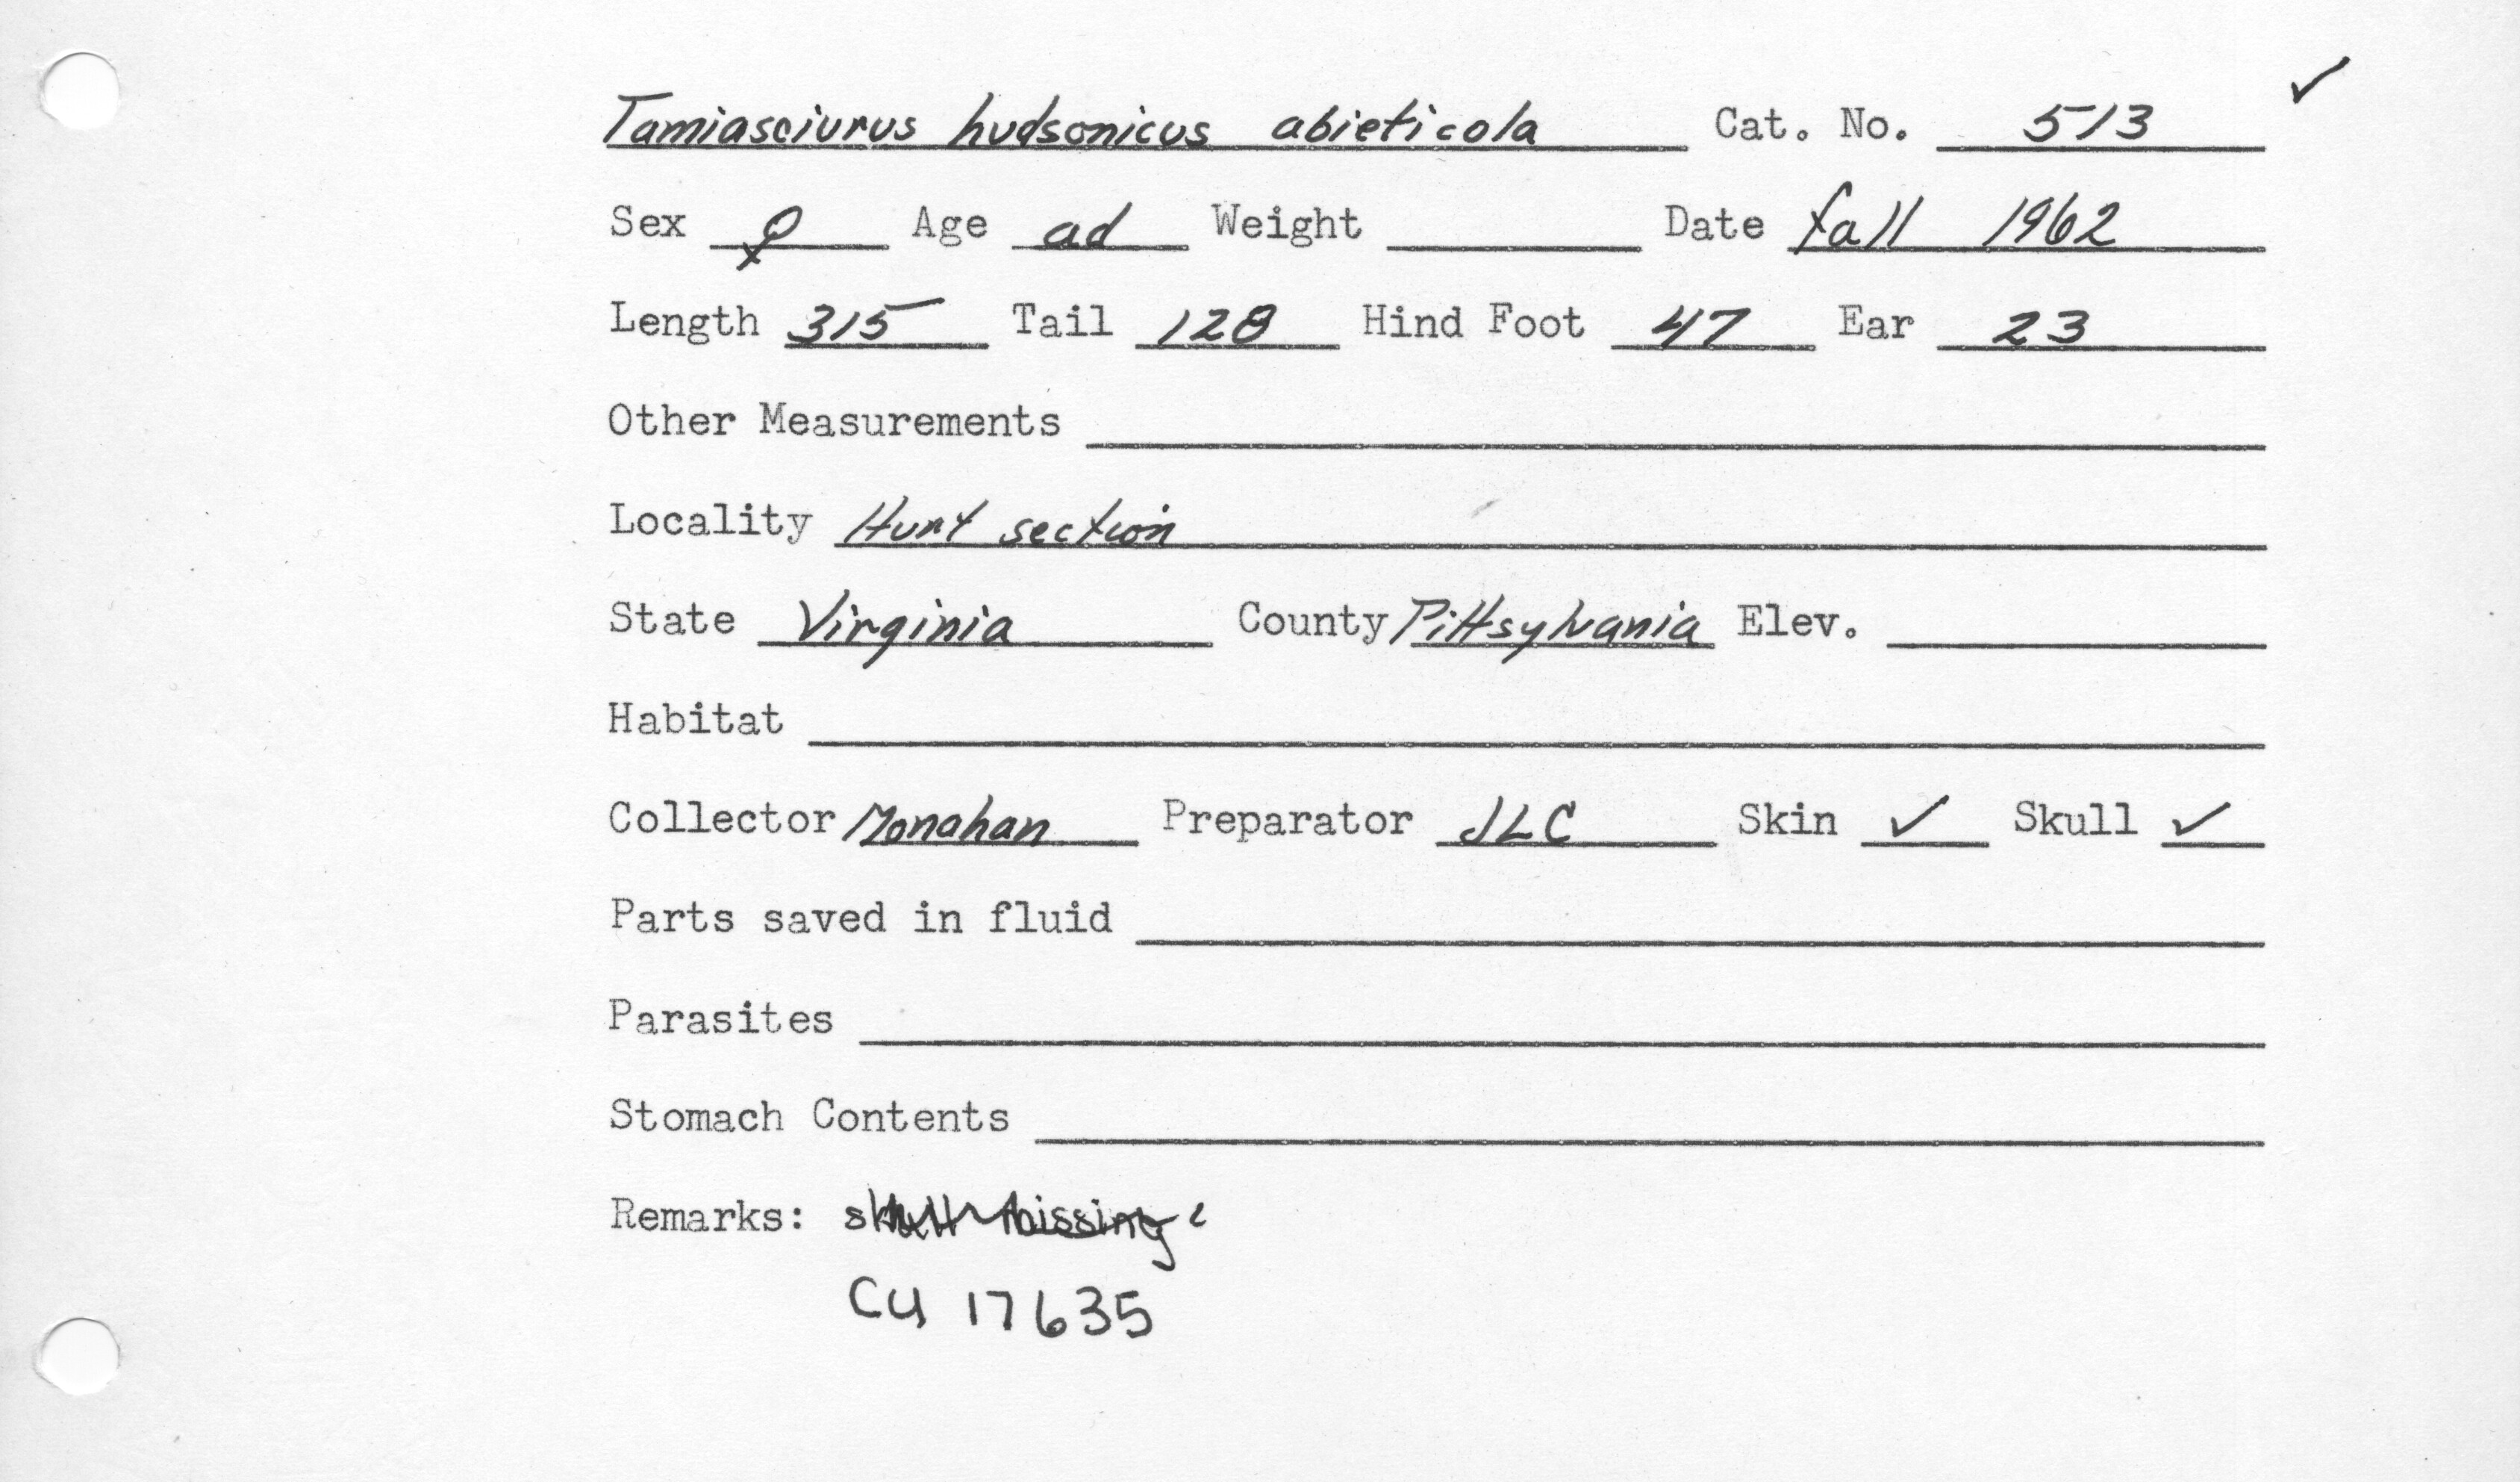 Tamiasciurus hudsonicus abieticola Cat. No. 513 ✓
Sex ♀ Age ad Weight Date fall 1962
Length 315 Tail 128 Hind Foot 47 Ear 23
Other Measurements
Locality Hurt section
State Virginia County Pittsylvania Elev.
Habitat
Collector Monahan Preparator JLC Skin ✓ Skull ✓
Parts saved in fluid
Parasites
Stomach Contents
Remarks: skull missing
CU 17635